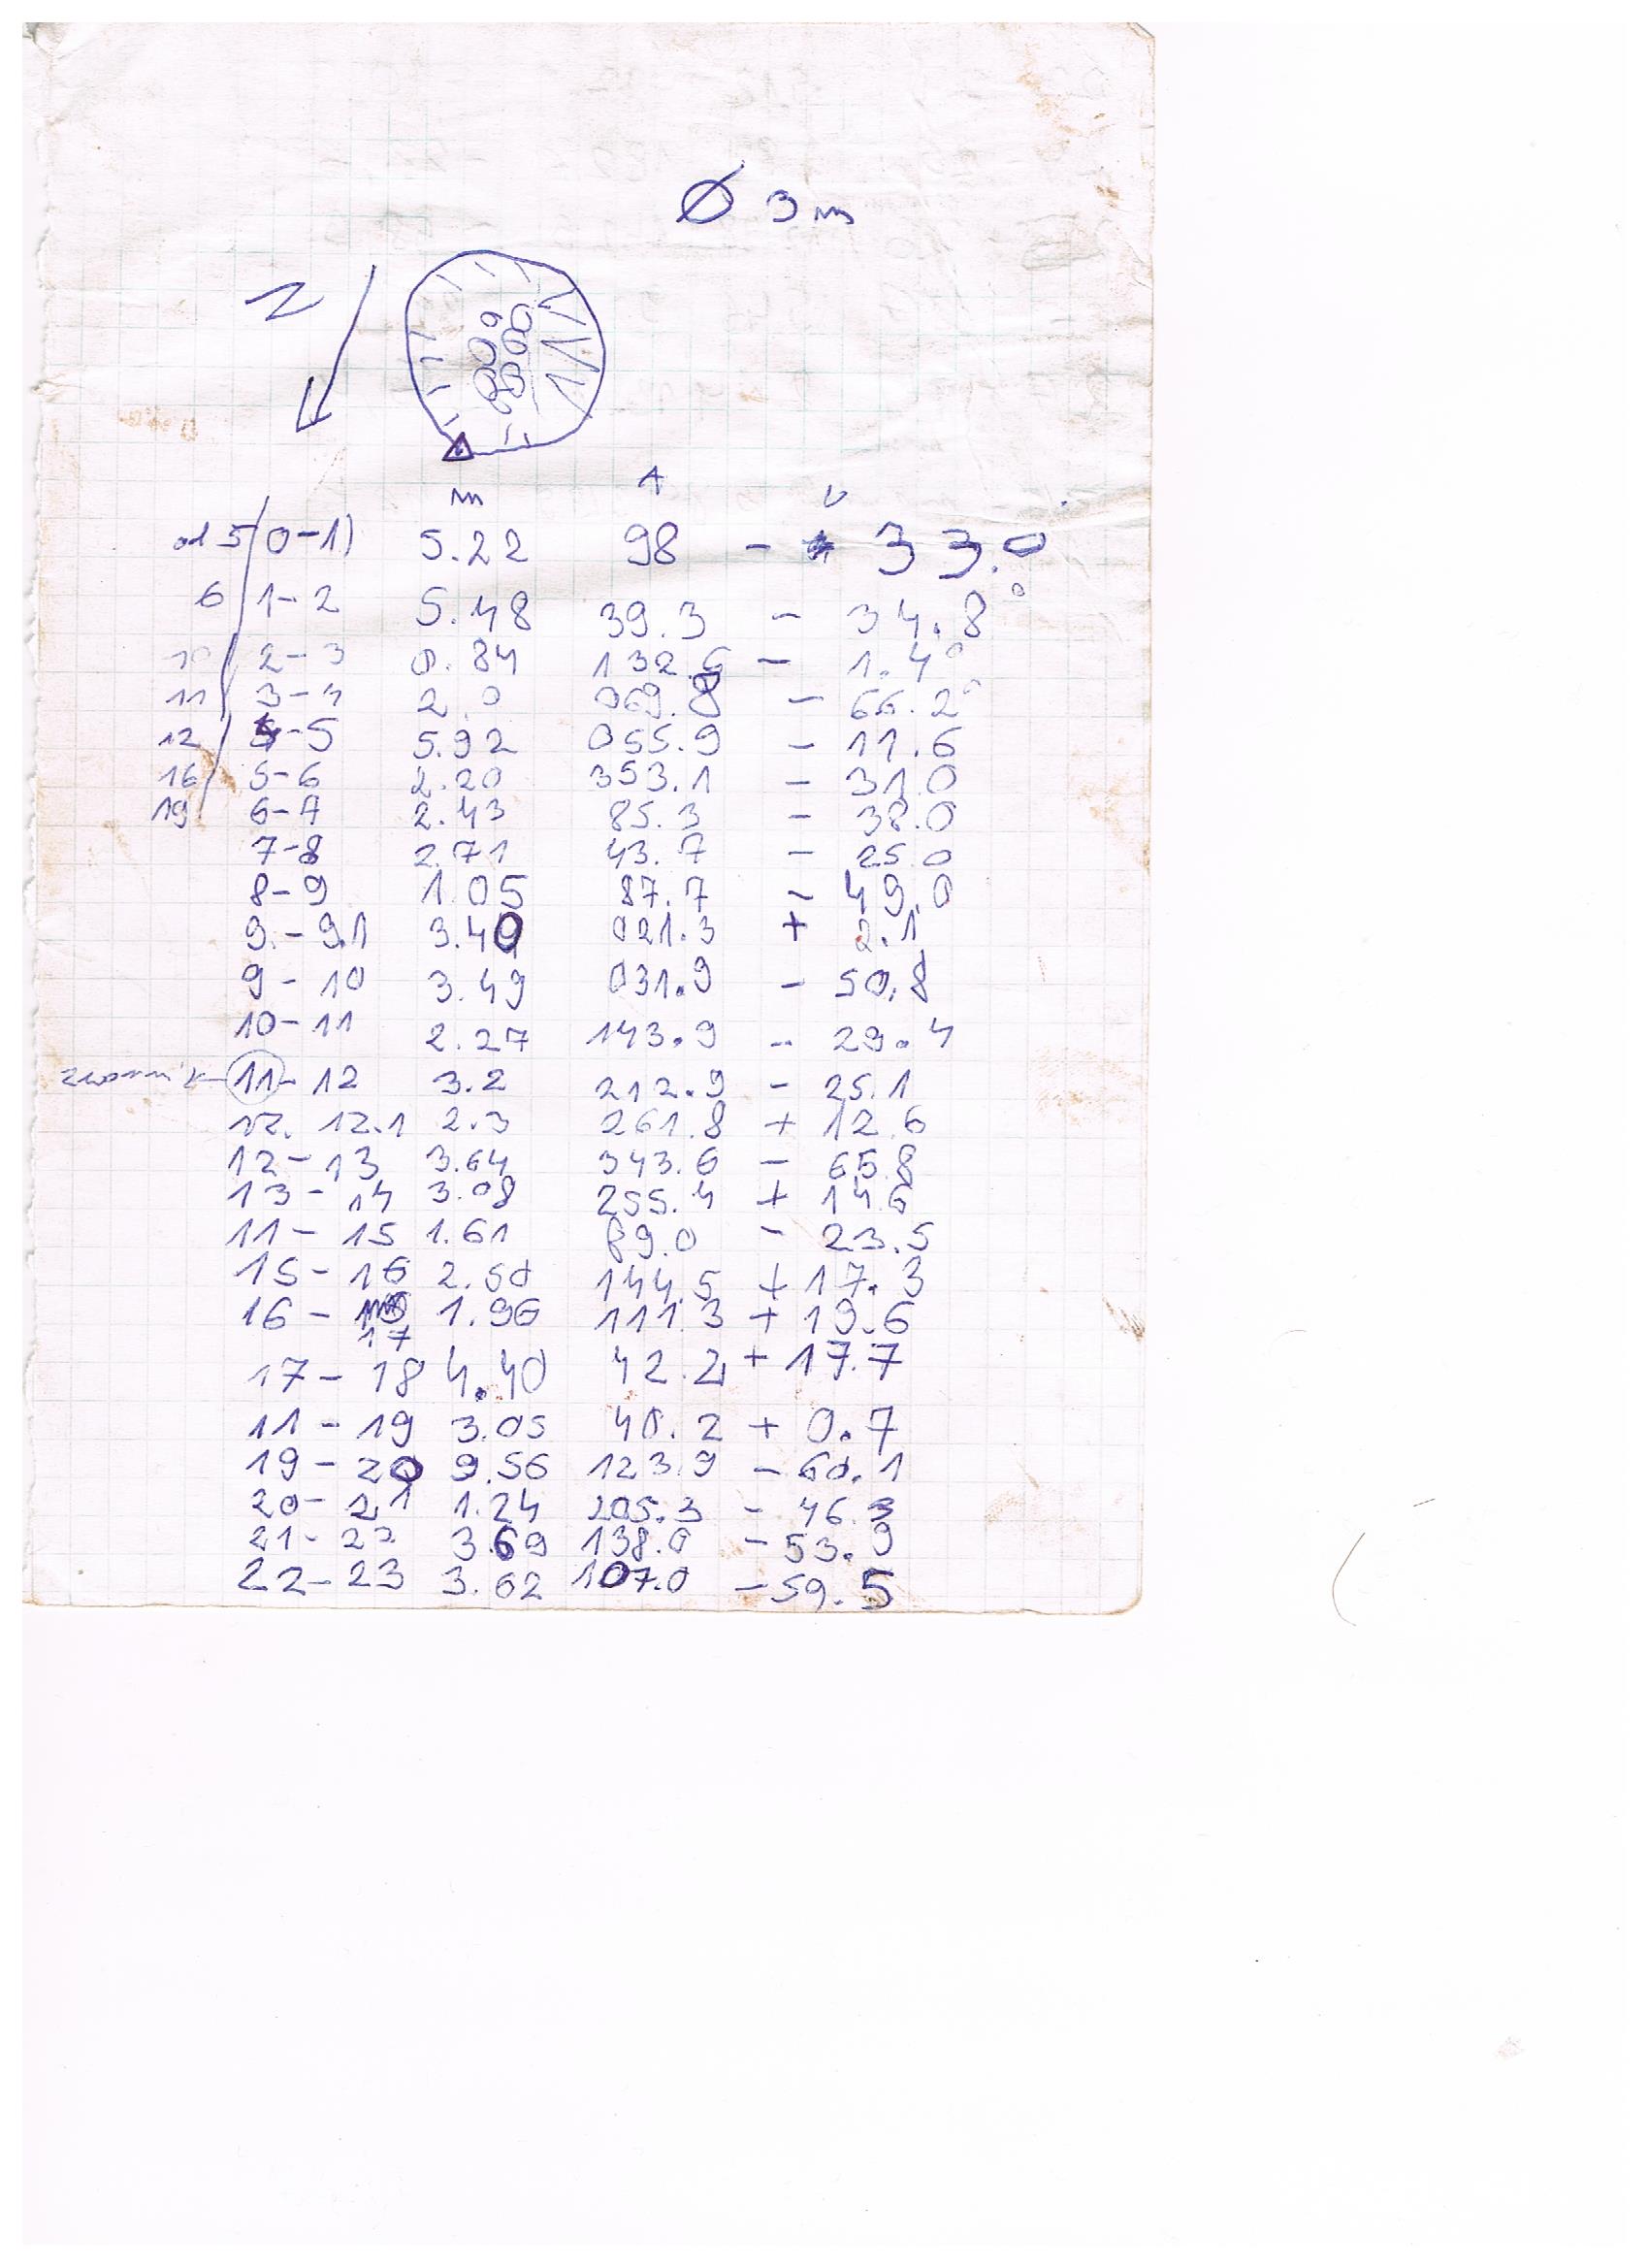 Ø 3 m
N
m A V
od 5 0-1) 5.22 98 - 33.0
6 1-2 5.48 39.3 - 34.8°
10 2-3 0.84 132.6 - 1.4°
11 3-4 2.0 069.8 - 66.2°
12 4-5 5.92 055.9 - 11.6
16 5-6 2.20 353.1 - 31.0
19 6-7 2.43 85.3 - 38.0
7-8 2.71 43.7 - 25.0
8-9 1.05 87.7 - 49.0
9.-9.1 3.40 021.3 + 2.1
9-10 3.49 031.9 - 50.8
10-11 2.27 143.9 - 29.4
11-12 3.2 212.9 - 25.1
12. 12.1 2.3 261.8 + 12.6
12-13 3.64 343.6 - 65.8
13-14 3.08 255.4 + 14.6
11-15 1.61 89.0 - 23.5
15-16 2.50 144.5 + 17.3
16-17 1.96 111.3 + 19.6
17-18 4.40 42.2 + 17.7
11-19 3.05 40.2 + 0.7
19-20 9.56 123.9 - 60.1
20-21 1.24 205.3 - 46.3
21-22 3.69 138.0 - 53.9
22-23 3.62 107.0 - 59.5